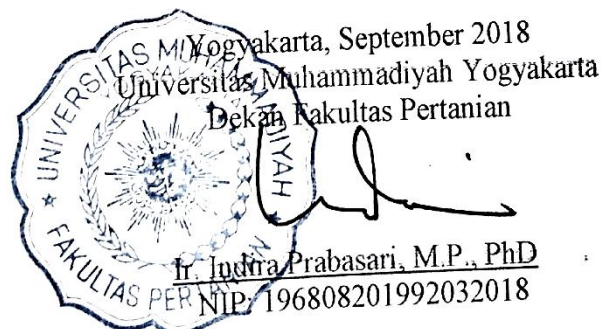 Yogyakarta, September 2018
Universitas Muhammadiyah Yogyakarta
Dekan Fakultas Pertanian
Ir. Indira Prabasari, M.P., PhD
NIP: 196808201992032018
UNIVERSITAS MUHAMMADIYAH
YOGYAKARTA
FAKULTAS PERTANIAN